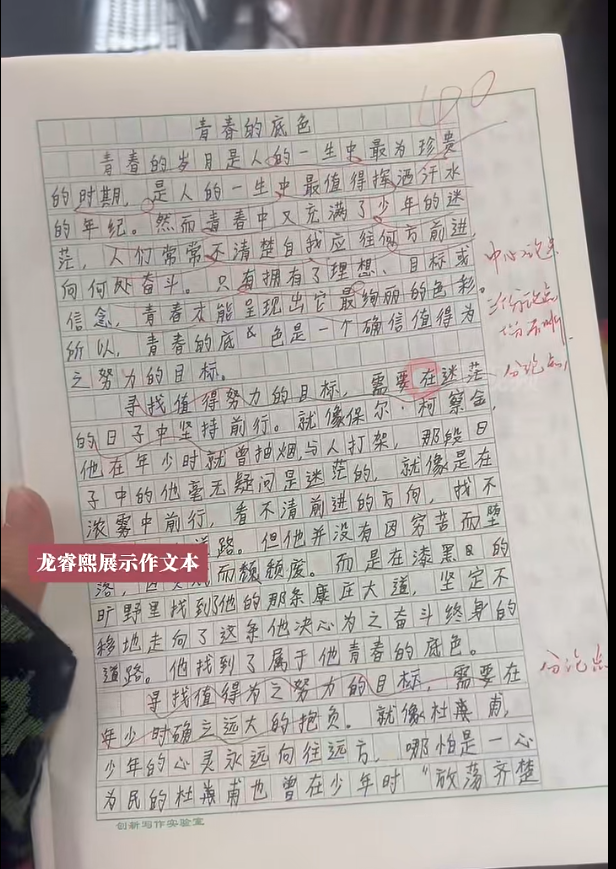 100
青春的底色
青春的岁月是人的一生中最为珍贵
的时期，是人的一生中最值得挥洒汗水
的年纪。然而青春中又充满了少年的迷
茫，人们常常不清楚自我应往何方前进，
向何处奋斗。只有拥有了理想、目标或
信念，青春才能呈现出它最绚丽的色彩。
所以，青春的底色是一个确信值得为
之努力的目标。
中心论点
分论点
分论点
寻找值得努力的目标，需要在迷茫
的日子中坚持前行。就像保尔·柯察金，
他在年少时就曾抽烟，与人打架，那段日
子中的他毫无疑问是迷茫的，就像是在
浓雾中前行，看不清前进的方向，找不
道路。但他并没有因穷苦而堕
落，而颓颓度。而是在漆黑的
旷野里找到了他的那条康庄大道，坚定不
移地走向了这条他决心为之奋斗终身的
道路。他找到了属于他青春的底色。
分论点
寻找值得为之努力的目标，需要在
年少时确立远大的抱负。就像杜甫，
少年的心灵永远向往远方，哪怕是一心
为民的杜甫也曾在少年时“放荡齐楚
创新写作实验室
龙睿熙展示作文本